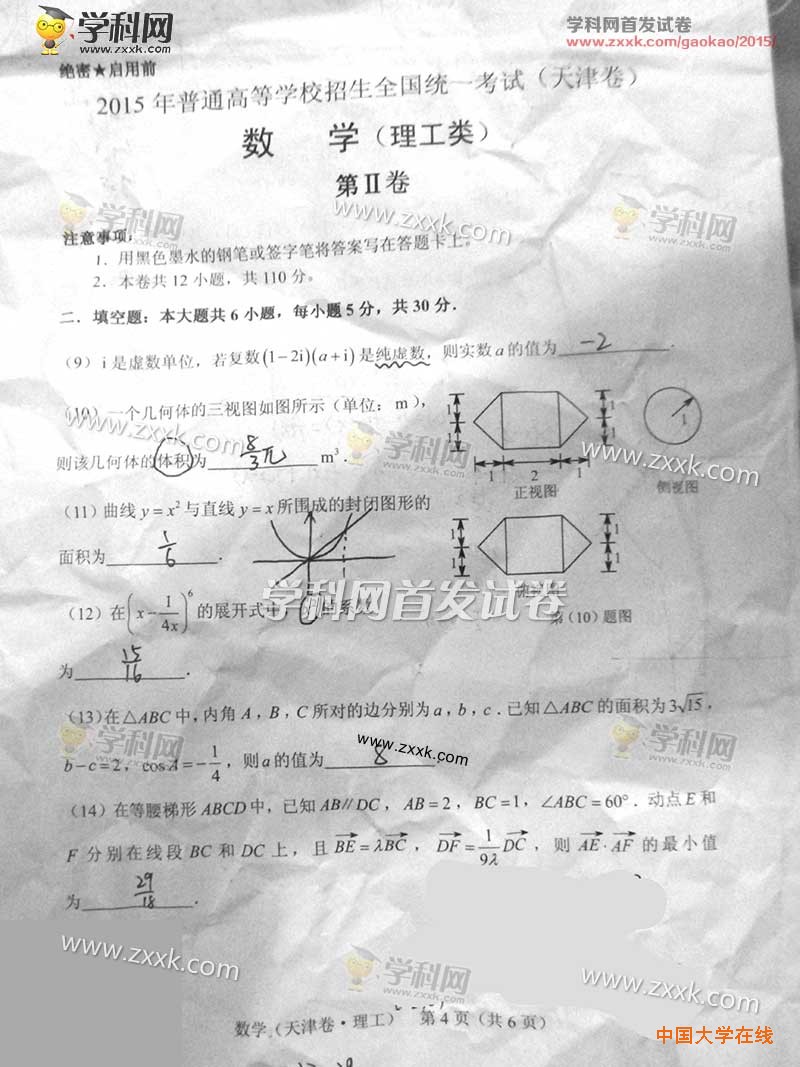 学科网
www.zxxk.com
学科网首发试卷
www.zxxk.com/gaokao/2015/
绝密★启用前
2015 年普通高等学校招生全国统一考试（天津卷）
数 学（理工类）
第Ⅱ卷
学科网
www.zxxk.com
学科网
www.zxxk.com
注意事项：
1．用黑色墨水的钢笔或签字笔将答案写在答题卡上。
2．本卷共 12 小题，共 110 分。
二．填空题：本大题共 6 小题，每小题 5 分，共 30 分．
（9）i 是虚数单位，若复数(1−2i)(a+i)是纯虚数，则实数 a 的值为 −2 ．
（10）一个几何体的三视图如图所示（单位：m），
则该几何体的体积为 8/3 π m³．
学科网
www.zxxk.com
1 1 1 2 1 1 1 1
正视图 侧视图
（11）曲线 y = x² 与直线 y = x 所围成的封闭图形的
面积为 1/6 ．
1 1 1 1
学科网首发试卷
第（10）题图
（12）在(x − 1/4x)⁶ 的展开式中
为 15/16 ．
（13）在△ABC 中，内角 A，B，C 所对的边分别为 a，b，c．已知△ABC 的面积为 3√15，
b−c=2，cos A=−1/4，则 a 的值为 8
www.zxxk.com
（14）在等腰梯形 ABCD 中，已知 AB∥DC，AB=2，BC=1，∠ABC=60°．动点 E 和
F 分别在线段 BC 和 DC 上，且 BE=λBC，DF=1/9λ DC，则 AE·AF 的最小值
为 29/18 ．
www.zxxk.com
学科网
www.zxxk.com
www.zxxk.com
数学（天津卷·理工） 第 4 页（共 6 页）
中国大学在线